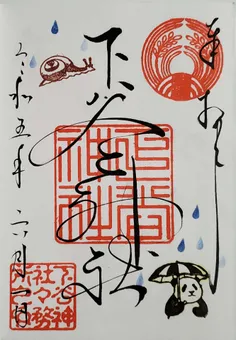 奉拝
下谷神社
令和五年 六月一日
下谷神社
下谷神社社務所